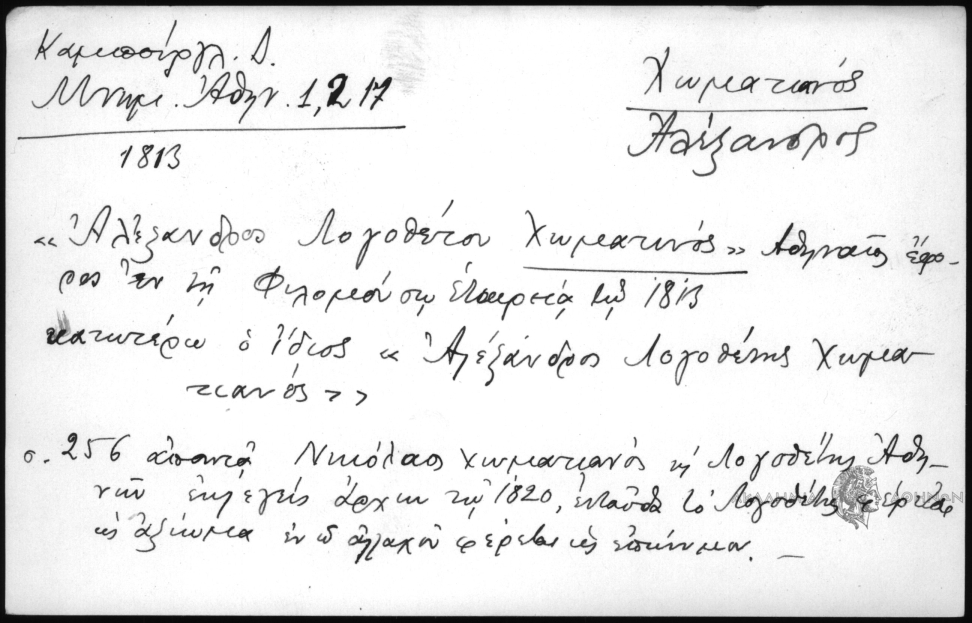 Καμπούρογλ. Δ.
Μνημ. Ἀθην. 1, 2 17
1813
Χωματιανός
Ἀλέξανδρος
« Ἀλέξανδρος Λογοθέτου Χωματιανός » Ἀθηναῖος ἔφο-
ρος ἐν τῇ Φιλομούσῳ Ἑταιρείᾳ τῷ 1813
κατωτέρω ὁ ἴδιος « Ἀλέξανδρος Λογοθέτης Χωμα-
τιανός »
σ. 256 ἀπαντᾷ Νικόλαος Χωματιανός ἢ Λογοθέτης Ἀθη-
νῶν ἐκλεγείς ἄρχων τῷ 1820, ἐνταῦθα τὸ Λογοθέτης φέρεται
ὡς ἀξίωμα ἐνῷ ἀλλαχοῦ φέρεται ὡς ἐπώνυμον. —
ΑΚΑΔΗΜΙΑ ΑΘΗΝΩΝ